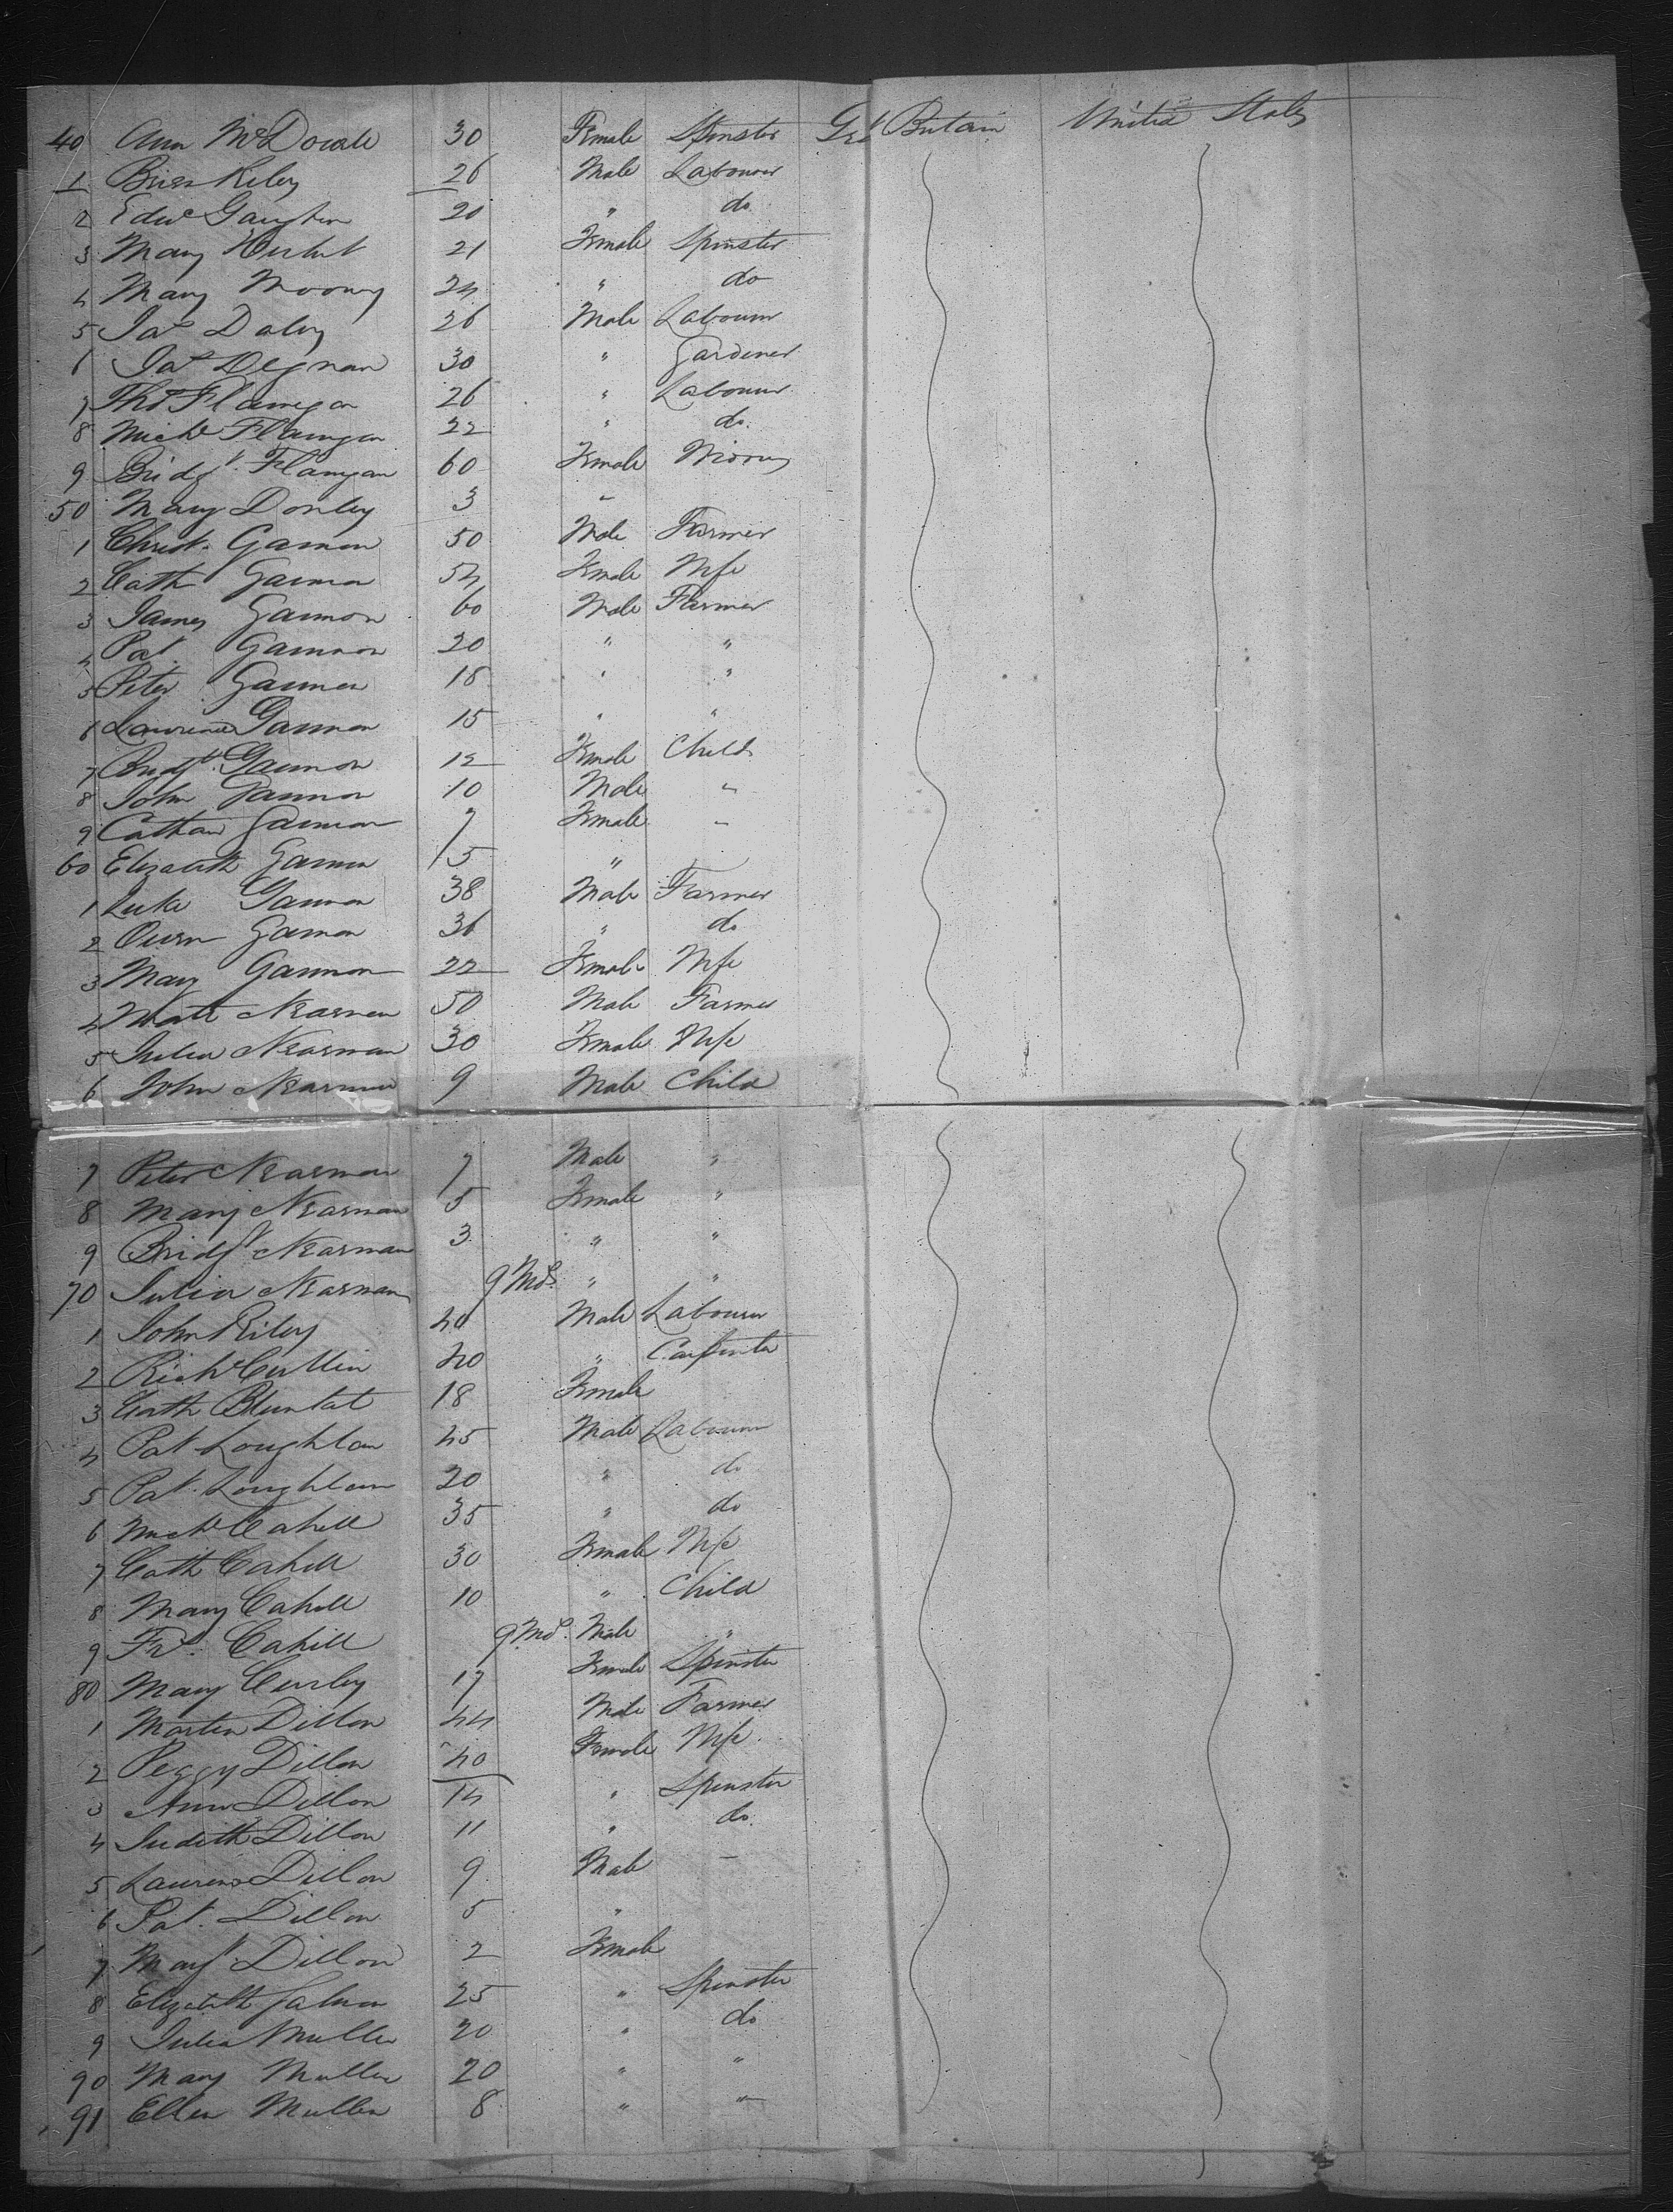 40 Ann McDowall 30 Female Spinster Grt Britain United States
1 Brien Riley 26 Male Labourer
2 Edwd Gaughin 20 " do
3 Mary 21 Female Spinster
4 Mary Mooney 24 " do
5 Jas Daley 26 Male Labourer
6 Jas Degnan 30 " Gardener
7 Thos Flanigan 26 " Labourer
8 Michl Flanigan 22 " do.
9 Bridgt Flanigan 60 Female
50 Mary Donley 3 "
1 Christ. Gannon 50 Male Farmer
2 Cath Gannon 54 Female Wife
3 James Gannon 60 Male Farmer
4 Pat Gannon 20 " "
5 Peter Gannon 18 " "
6 Lawrence Gannon 15 " "
7 Bridgt Gannon 12 Female Child
8 John Gannon 10 Male "
9 Cathan Gannon 7 Female "
60 Elizabeth Gannon 5 "
1 Luke Gannon 38 Male Farmer
2 Owen Gannon 36 " do
3 Mary Gannon 22 Female Wife
4 Matt Nearnan 50 Male Farmer
5 Julia Nearnan 30 Female Wife
6 John Nearnan 9 Male Child
7 Peter Nearnan 7 Male "
8 Mary Nearnan 5 Female "
9 Bridgt Nearnan 3 " "
70 Julia Nearnan 9 Mos. " "
1 John Riley 40 Male Labourer
2 Richd Cullin 40 " Carpenter
3 Cath Bluntat 18 Female
4 Pat Loughlan 45 Male Labourer
5 Pat. Loughlan 20 " do
6 Michl Cahill 35 " do
7 Cath Cahill 30 Female Wife
8 Mary Cahill 10 " Child
9 Frs. Cahill 9 Mos. Male "
80 Mary Curley 17 Female Spinster
1 Martin Dillon 44 Male Farmer
2 Peggy Dillon 40 Female Wife
3 Ann Dillon 14 " Spinster
4 Judith Dillon 11 " do.
5 Laurence Dillon 9 Male "
6 Pat. Dillon 5 "
7 Margt Dillon 2 Female
8 Elizabeth Galvan 25 " Spinster
9 Julia Mullen 20 " do
90 Mary Mullen 20 " "
91 Ellen Mullen 8 " "